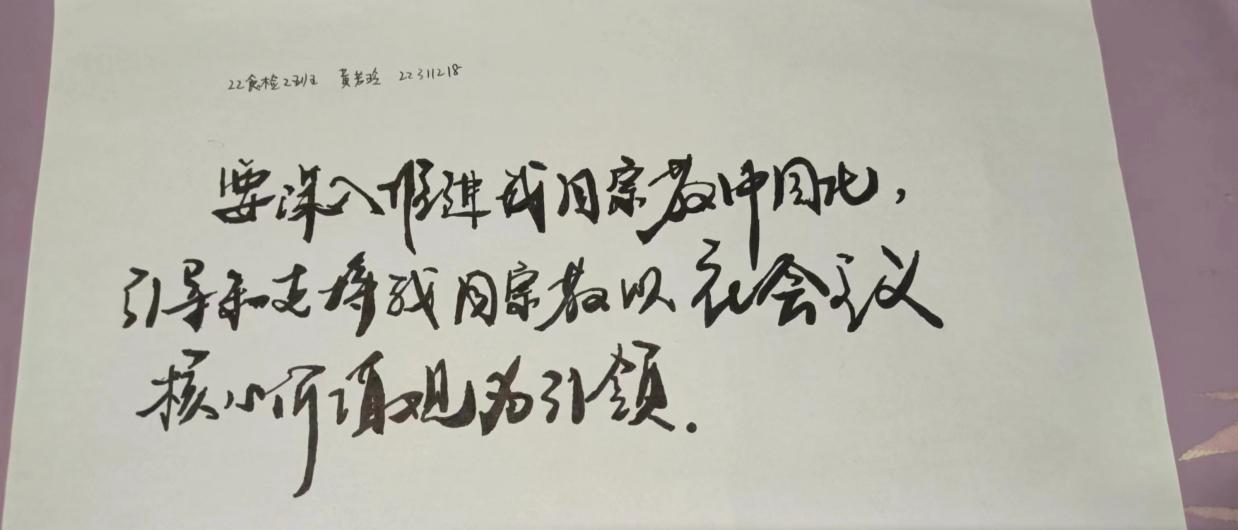 22食检2班 黄若玲 22311218
要深入推进我国宗教中国化，
引导和支持我国宗教以社会主义
核心价值观为引领.